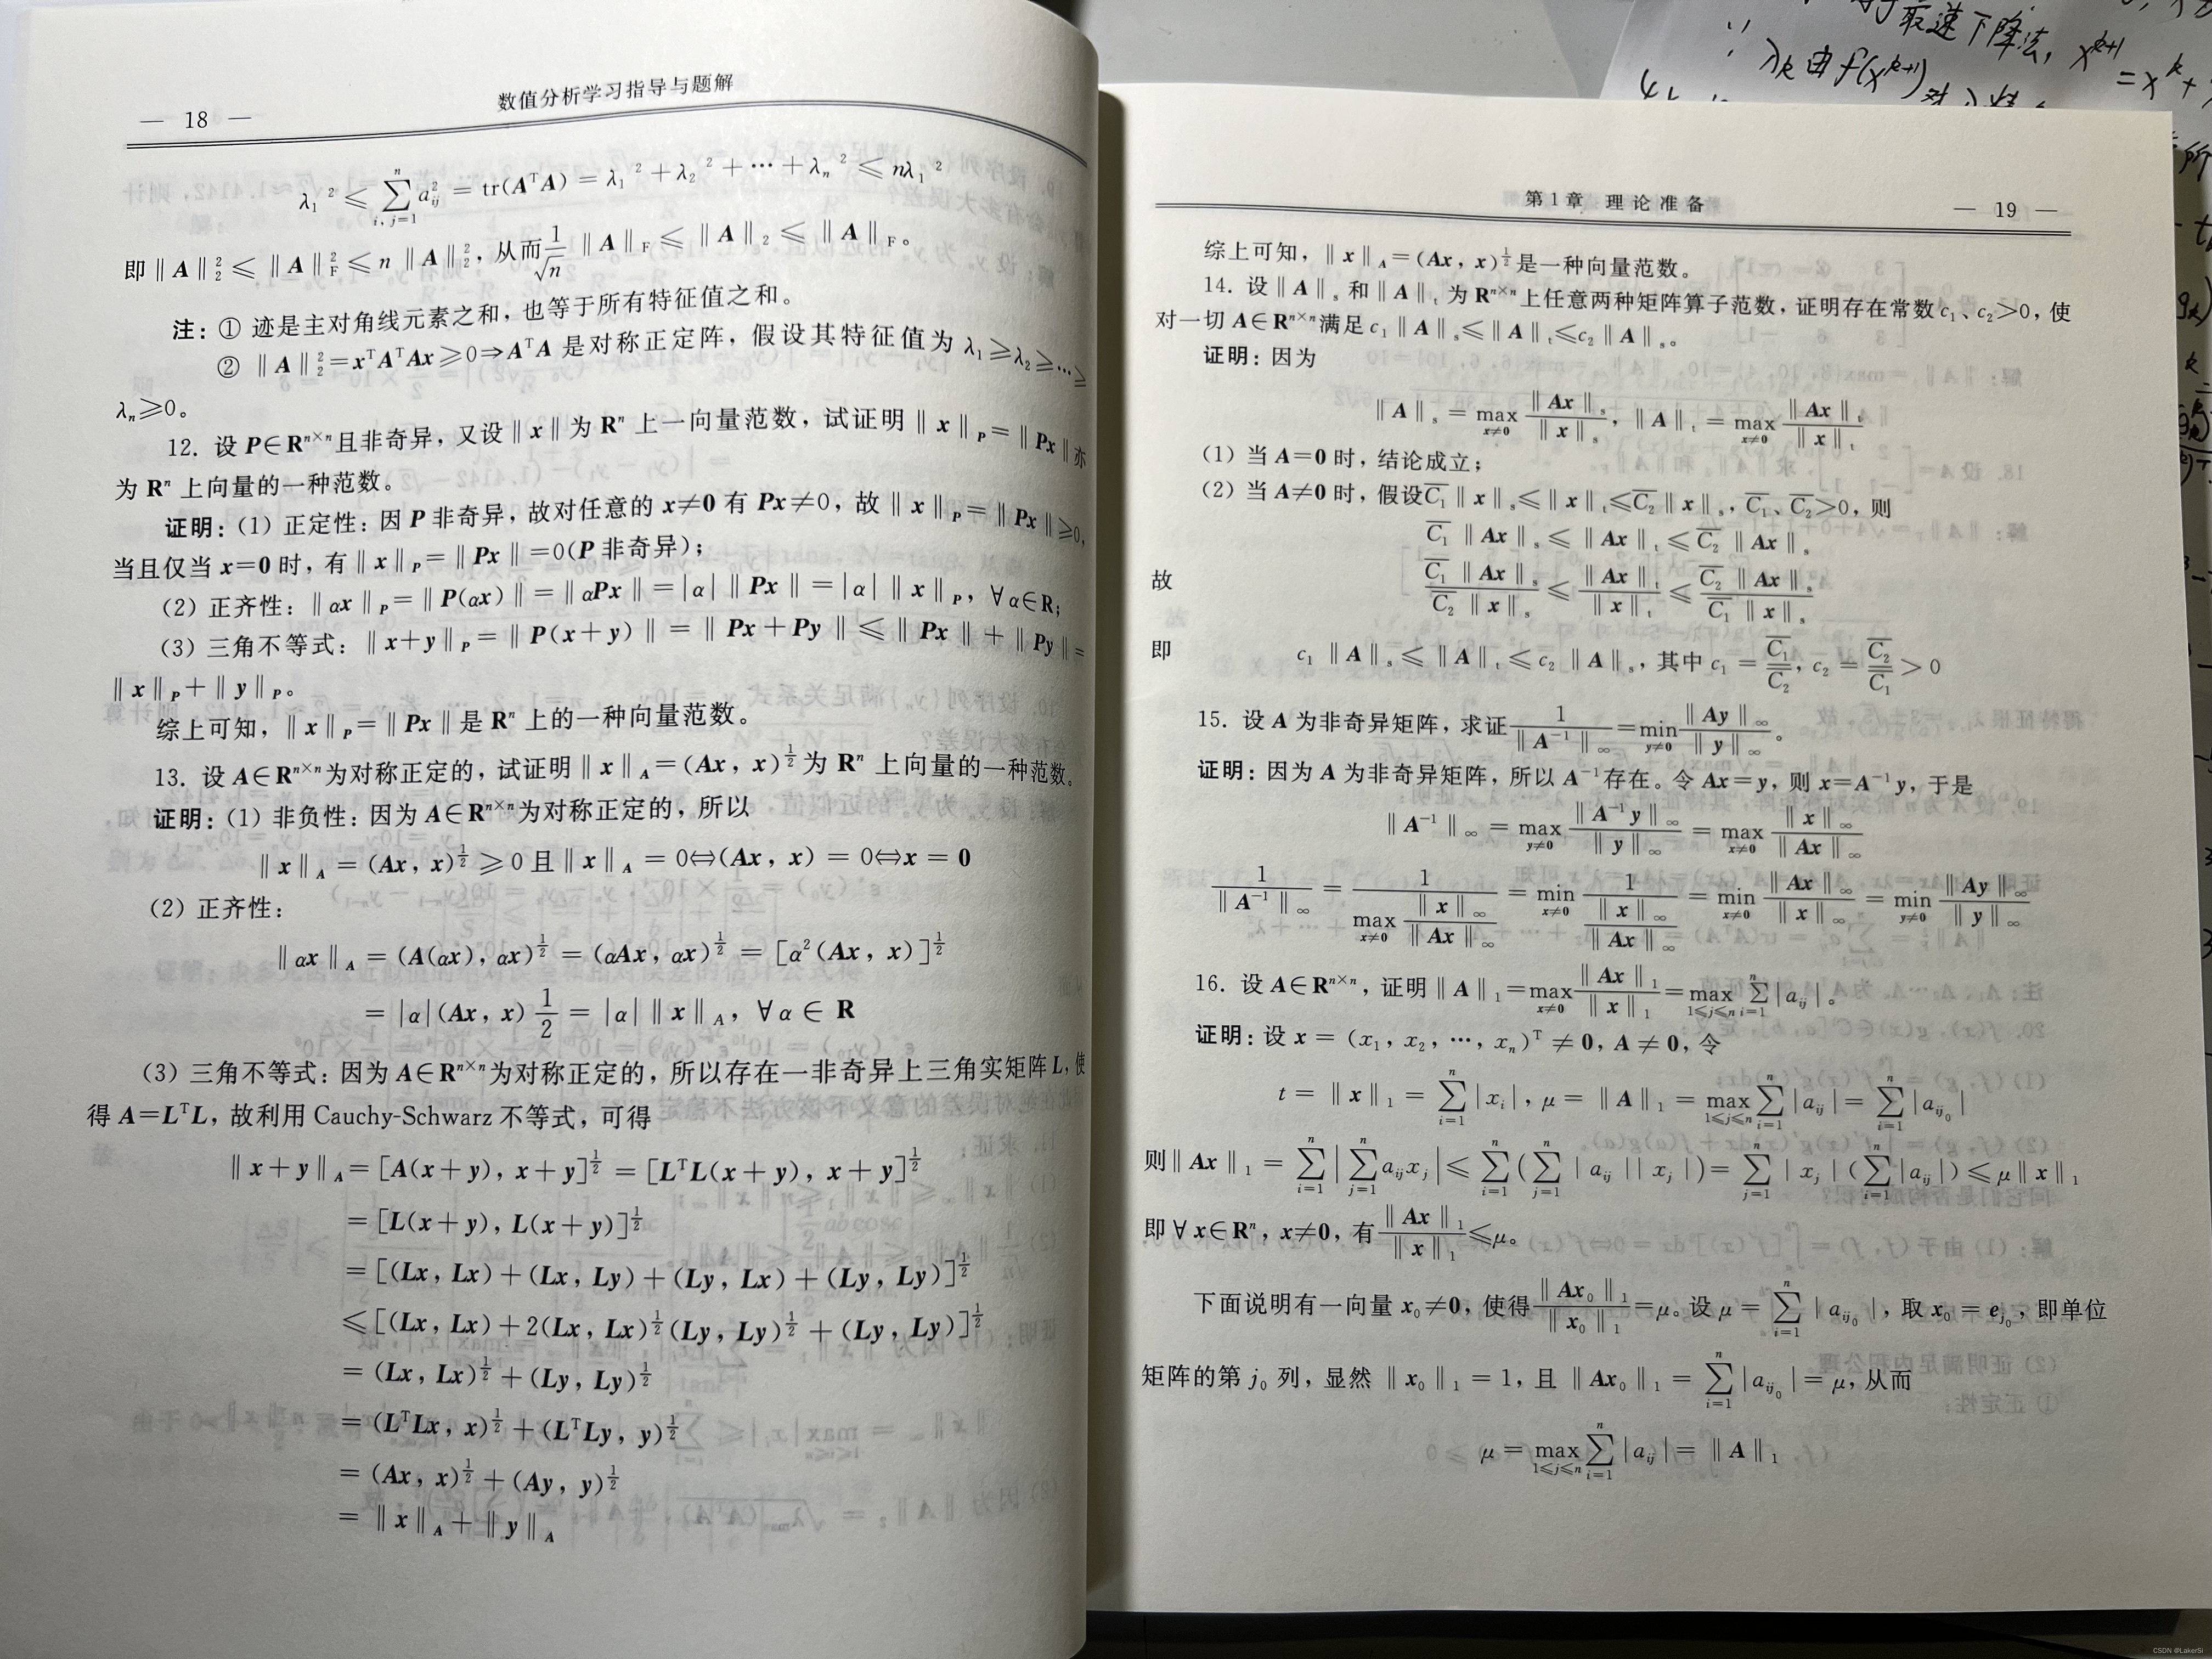 — 18 —
数值分析学习指导与题解
λ₁² ≤ ∑_{i,j=1}^{n} a_{ij}² = tr(AᵀA) = λ₁² + λ₂² + ⋯ + λₙ² ≤ nλ₁²
即‖A‖₂² ≤ ‖A‖_F² ≤ n‖A‖₂², 从而 1/√n ‖A‖_F ≤ ‖A‖₂ ≤ ‖A‖_F。
注: ① 迹是主对角线元素之和, 也等于所有特征值之和。
② ‖A‖₂²=xᵀAᵀAx≥0⇒AᵀA 是对称正定阵, 假设其特征值为 λ₁≥λ₂≥⋯≥
λₙ≥0。
12. 设 P∈Rⁿˣⁿ且非奇异, 又设‖x‖为 Rⁿ 上一向量范数, 试证明‖x‖_P=‖Px‖亦
为 Rⁿ 上向量的一种范数。
证明: (1) 正定性: 因 P 非奇异, 故对任意的 x≠0 有 Px≠0, 故‖x‖_P=‖Px‖≥0,
当且仅当 x=0 时, 有‖x‖_P=‖Px‖=0(P 非奇异);
(2) 正齐性: ‖αx‖_P=‖P(αx)‖=‖αPx‖=|α|‖Px‖=|α|‖x‖_P, ∀α∈R;
(3) 三角不等式: ‖x+y‖_P=‖P(x+y)‖=‖Px+Py‖≤‖Px‖+‖Py‖=
‖x‖_P+‖y‖_P。
综上可知, ‖x‖_P=‖Px‖是 Rⁿ 上的一种向量范数。
13. 设 A∈Rⁿˣⁿ为对称正定的, 试证明‖x‖_A=(Ax, x)^{1/2}为 Rⁿ 上向量的一种范数。
证明: (1) 非负性: 因为 A∈Rⁿˣⁿ为对称正定的, 所以
‖x‖_A = (Ax, x)^{1/2} ≥ 0 且‖x‖_A = 0⇔(Ax, x) = 0⇔x = 0
(2) 正齐性:
‖αx‖_A = (A(αx), αx)^{1/2} = (αAx, αx)^{1/2} = [α²(Ax, x)]^{1/2}
= |α|(Ax, x) 1/2 = |α|‖x‖_A, ∀α ∈ R
(3) 三角不等式: 因为 A∈Rⁿˣⁿ为对称正定的, 所以存在一非奇异上三角实矩阵 L, 使
得 A=LᵀL, 故利用 Cauchy-Schwarz 不等式, 可得
‖x+y‖_A = [A(x+y), x+y]^{1/2} = [LᵀL(x+y), x+y]^{1/2}
= [L(x+y), L(x+y)]^{1/2}
= [(Lx, Lx)+(Lx, Ly)+(Ly, Lx)+(Ly, Ly)]^{1/2}
≤ [(Lx, Lx)+2(Lx, Lx)^{1/2}(Ly, Ly)^{1/2}+(Ly, Ly)]^{1/2}
= (Lx, Lx)^{1/2}+(Ly, Ly)^{1/2}
= (LᵀLx, x)^{1/2}+(LᵀLy, y)^{1/2}
= (Ax, x)^{1/2}+(Ay, y)^{1/2}
= ‖x‖_A+‖y‖_A
第1章 理论准备
— 19 —
综上可知, ‖x‖_A=(Ax, x)^{1/2}是一种向量范数。
14. 设‖A‖_s 和‖A‖_t 为 Rⁿˣⁿ上任意两种矩阵算子范数, 证明存在常数 c₁、c₂>0, 使
对一切 A∈Rⁿˣⁿ满足 c₁‖A‖_s≤‖A‖_t≤c₂‖A‖_s。
证明: 因为
‖A‖_s = max_{x≠0} ‖Ax‖_s/‖x‖_s, ‖A‖_t = max_{x≠0} ‖Ax‖_t/‖x‖_t
(1) 当 A=0 时, 结论成立;
(2) 当 A≠0 时, 假设C̅₁‖x‖_s≤‖x‖_t≤C̅₂‖x‖_s, C̅₁、C̅₂>0, 则
C̅₁‖Ax‖_s ≤ ‖Ax‖_t ≤ C̅₂‖Ax‖_s
故 C̅₁‖Ax‖_s/(C̅₂‖x‖_s) ≤ ‖Ax‖_t/‖x‖_t ≤ C̅₂‖Ax‖_s/(C̅₁‖x‖_s)
即 c₁‖A‖_s ≤ ‖A‖_t ≤ c₂‖A‖_s, 其中 c₁ = C̅₁/C̅₂, c₂ = C̅₂/C̅₁ > 0
15. 设 A 为非奇异矩阵, 求证 1/‖A⁻¹‖_∞ = min_{y≠0} ‖Ay‖_∞/‖y‖_∞。
证明: 因为 A 为非奇异矩阵, 所以 A⁻¹存在。令 Ax=y, 则 x=A⁻¹y, 于是
‖A⁻¹‖_∞ = max_{y≠0} ‖A⁻¹y‖_∞/‖y‖_∞ = max_{x≠0} ‖x‖_∞/‖Ax‖_∞
1/‖A⁻¹‖_∞ = 1/(max_{x≠0} ‖x‖_∞/‖Ax‖_∞) = min_{x≠0} 1/(‖x‖_∞/‖Ax‖_∞) = min_{x≠0} ‖Ax‖_∞/‖x‖_∞ = min_{y≠0} ‖Ay‖_∞/‖y‖_∞
16. 设 A∈Rⁿˣⁿ, 证明‖A‖₁ = max_{x≠0} ‖Ax‖₁/‖x‖₁ = max_{1≤j≤n} ∑_{i=1}^{n} |a_{ij}|。
证明: 设 x = (x₁, x₂, ⋯, xₙ)ᵀ ≠ 0, A ≠ 0, 令
t = ‖x‖₁ = ∑_{i=1}^{n} |x_i|, μ = ‖A‖₁ = max_{1≤j≤n} ∑_{i=1}^{n} |a_{ij}| = ∑_{i=1}^{n} |a_{ij₀}|
则‖Ax‖₁ = ∑_{i=1}^{n} |∑_{j=1}^{n} a_{ij}x_j| ≤ ∑_{i=1}^{n} (∑_{j=1}^{n} |a_{ij}||x_j|) = ∑_{j=1}^{n} |x_j| (∑_{i=1}^{n} |a_{ij}|) ≤ μ‖x‖₁
即 ∀x∈Rⁿ, x≠0, 有 ‖Ax‖₁/‖x‖₁ ≤ μ。
下面说明有一向量 x₀≠0, 使得 ‖Ax₀‖₁/‖x₀‖₁ = μ。设 μ = ∑_{i=1}^{n} |a_{ij₀}|, 取 x₀ = e_{j₀}, 即单位
矩阵的第 j₀ 列, 显然 ‖x₀‖₁ = 1, 且 ‖Ax₀‖₁ = ∑_{i=1}^{n} |a_{ij₀}| = μ, 从而
μ = max_{1≤j≤n} ∑_{i=1}^{n} |a_{ij}| = ‖A‖₁
最速下降法, x^{k+1} = x^k +
∵ λ_k 由 f(x^{k+1}) 对
CSDN @LakerSi